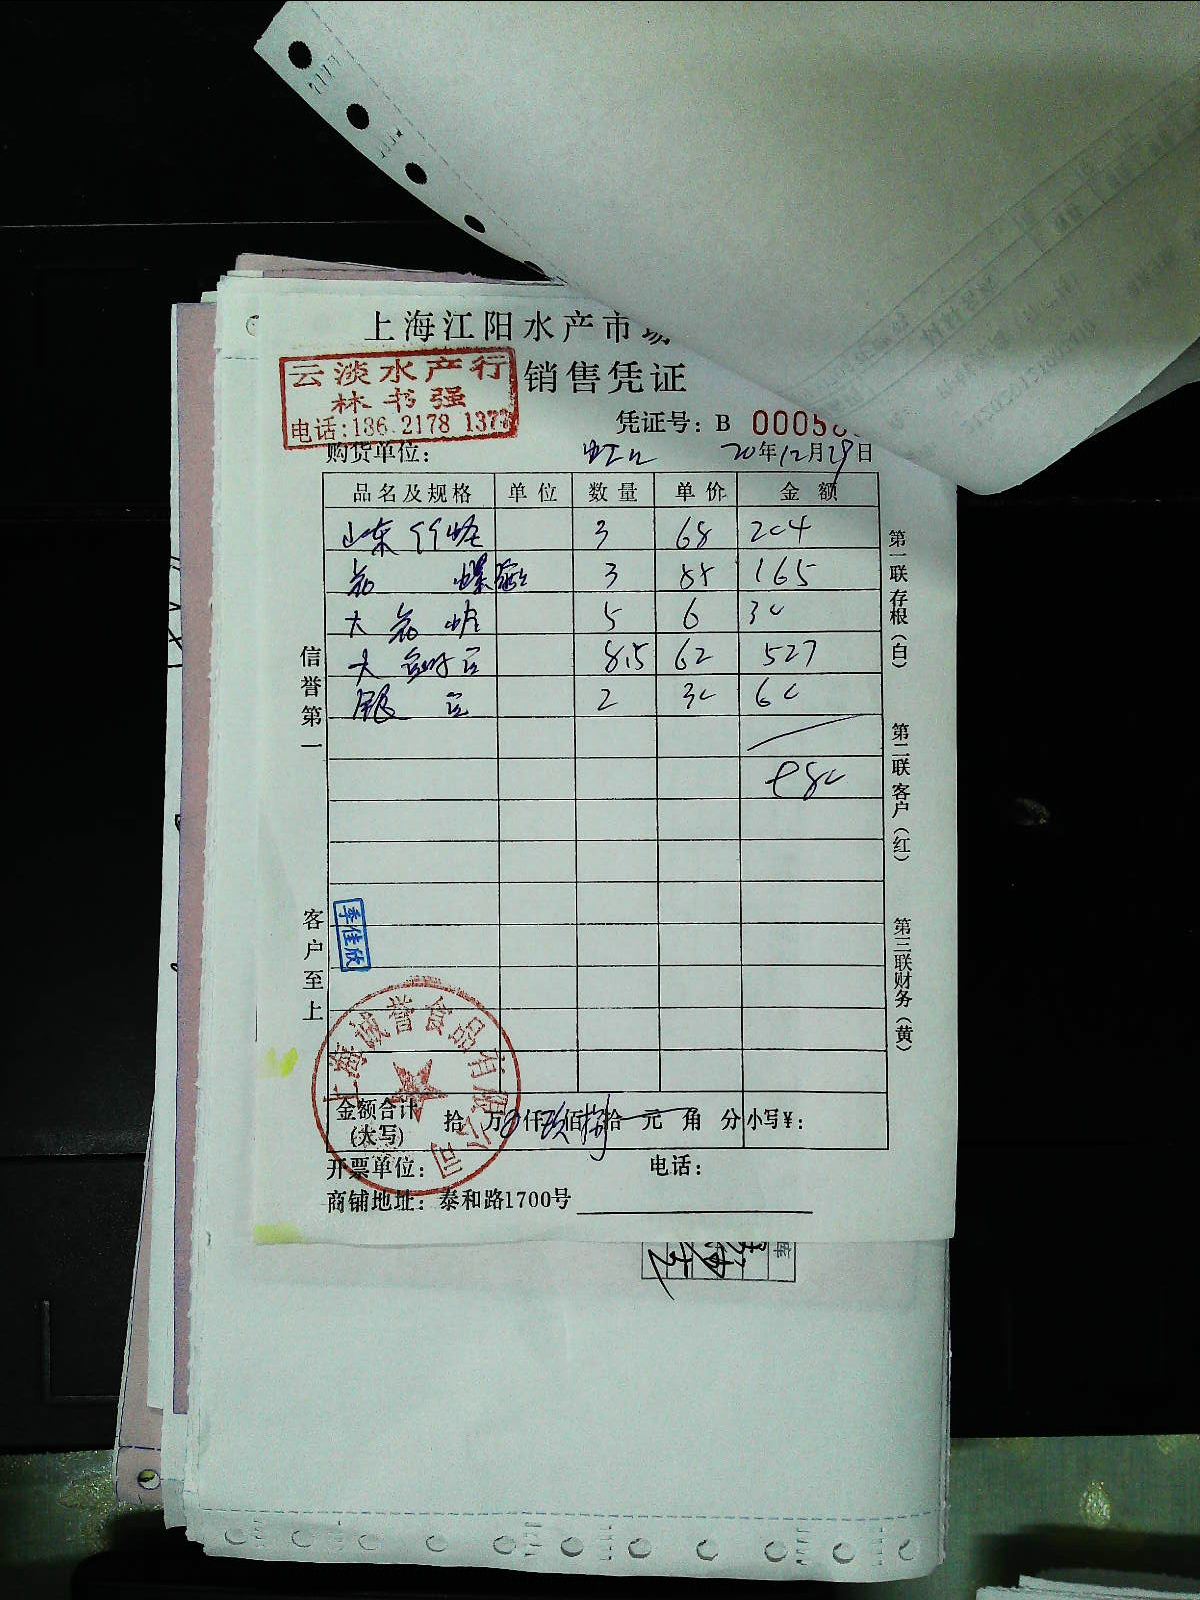 上海江阳水产市场
销售凭证
云淡水产行
林书强
电话:136 2178 1377
凭证号: B 00058
购货单位: 虹口 20年12月29日
品名及规格 单位 数量 单价 金额
山东竹蛏 3 68 204
螺 3 55 165
大 5 6 30
大 8.5 62 527
银 2 30 60
980
信誉第一
客户至上
第一联存根(白)
第二联客户(红)
第三联财务(黄)
季佳欣
上海诚誉食品有限公司
金额合计(大写) 拾 万 仟玖佰捌拾 元 角 分 小写¥:
开票单位: 电话:
商铺地址: 泰和路1700号